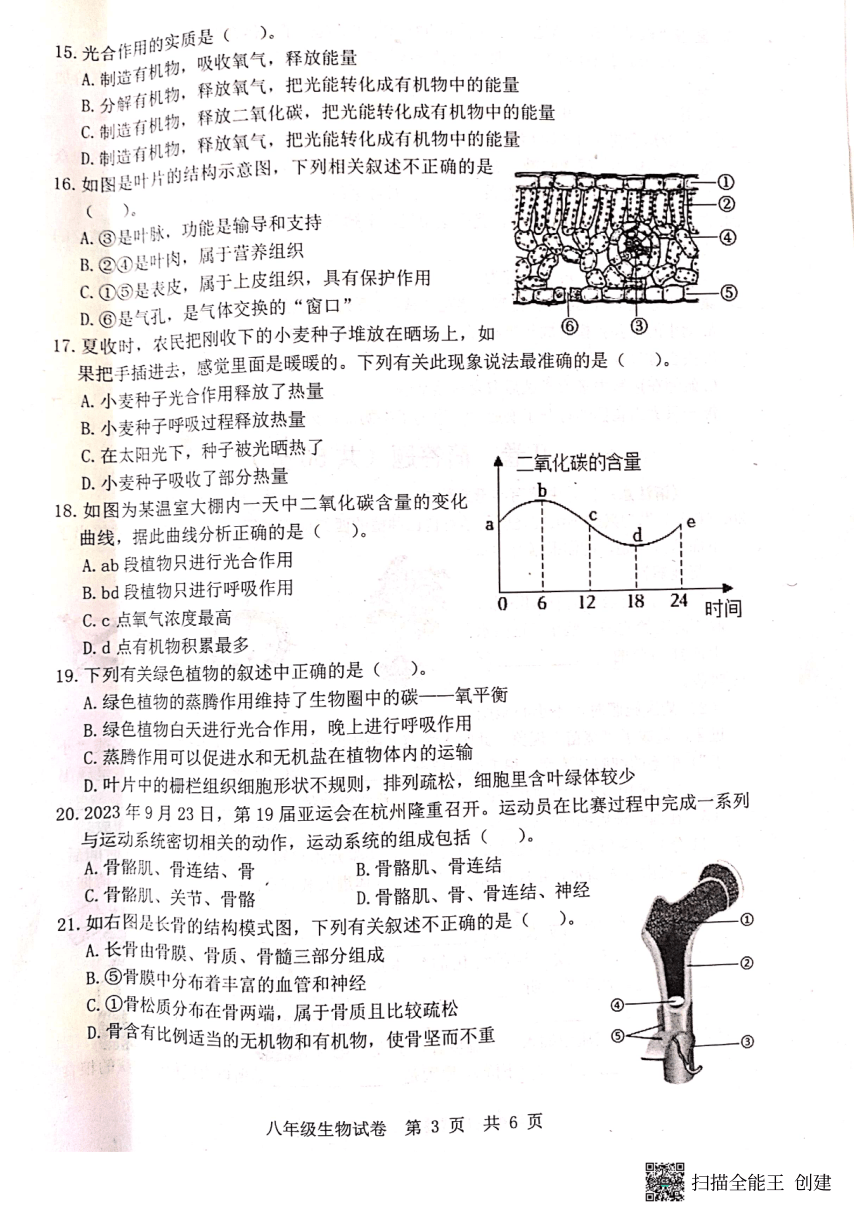 15. 光合作用的实质是（　　）。
A. 制造有机物，吸收氧气，释放能量
B. 分解有机物，释放氧气，把光能转化成有机物中的能量
C. 制造有机物，释放二氧化碳，把光能转化成有机物中的能量
D. 制造有机物，释放氧气，把光能转化成有机物中的能量
16. 如图是叶片的结构示意图，下列相关叙述不正确的是
（　　）。
A. ③是叶脉，功能是输导和支持
B. ②④是叶肉，属于营养组织
C. ①⑤是表皮，属于上皮组织，具有保护作用
D. ⑥是气孔，是气体交换的“窗口”
①
②
④
⑤
⑥ ③
17. 夏收时，农民把刚收下的小麦种子堆放在晒场上，如
果把手插进去，感觉里面是暖暖的。下列有关此现象说法最准确的是（　　）。
A. 小麦种子光合作用释放了热量
B. 小麦种子呼吸过程释放热量
C. 在太阳光下，种子被光晒热了
D. 小麦种子吸收了部分热量
18. 如图为某温室大棚内一天中二氧化碳含量的变化
曲线，据此曲线分析正确的是（　　）。
A. ab 段植物只进行光合作用
B. bd 段植物只进行呼吸作用
C. c 点氧气浓度最高
D. d 点有机物积累最多
二氧化碳的含量
a b c d e
0 6 12 18 24 时间
19. 下列有关绿色植物的叙述中正确的是（　　）。
A. 绿色植物的蒸腾作用维持了生物圈中的碳——氧平衡
B. 绿色植物白天进行光合作用，晚上进行呼吸作用
C. 蒸腾作用可以促进水和无机盐在植物体内的运输
D. 叶片中的栅栏组织细胞形状不规则，排列疏松，细胞里含叶绿体较少
20. 2023 年 9 月 23 日，第 19 届亚运会在杭州隆重召开。运动员在比赛过程中完成一系列
与运动系统密切相关的动作，运动系统的组成包括（　　）。
A. 骨骼肌、骨连结、骨　　B. 骨骼肌、骨连结
C. 骨骼肌、关节、骨骼　　D. 骨骼肌、骨、骨连结、神经
21. 如右图是长骨的结构模式图，下列有关叙述不正确的是（　　）。
A. 长骨由骨膜、骨质、骨髓三部分组成
B. ⑤骨膜中分布着丰富的血管和神经
C. ①骨松质分布在骨两端，属于骨质且比较疏松
D. 骨含有比例适当的无机物和有机物，使骨坚而不重
①
②
④
⑤ ③
八年级生物试卷　第 3 页　共 6 页
扫描全能王 创建